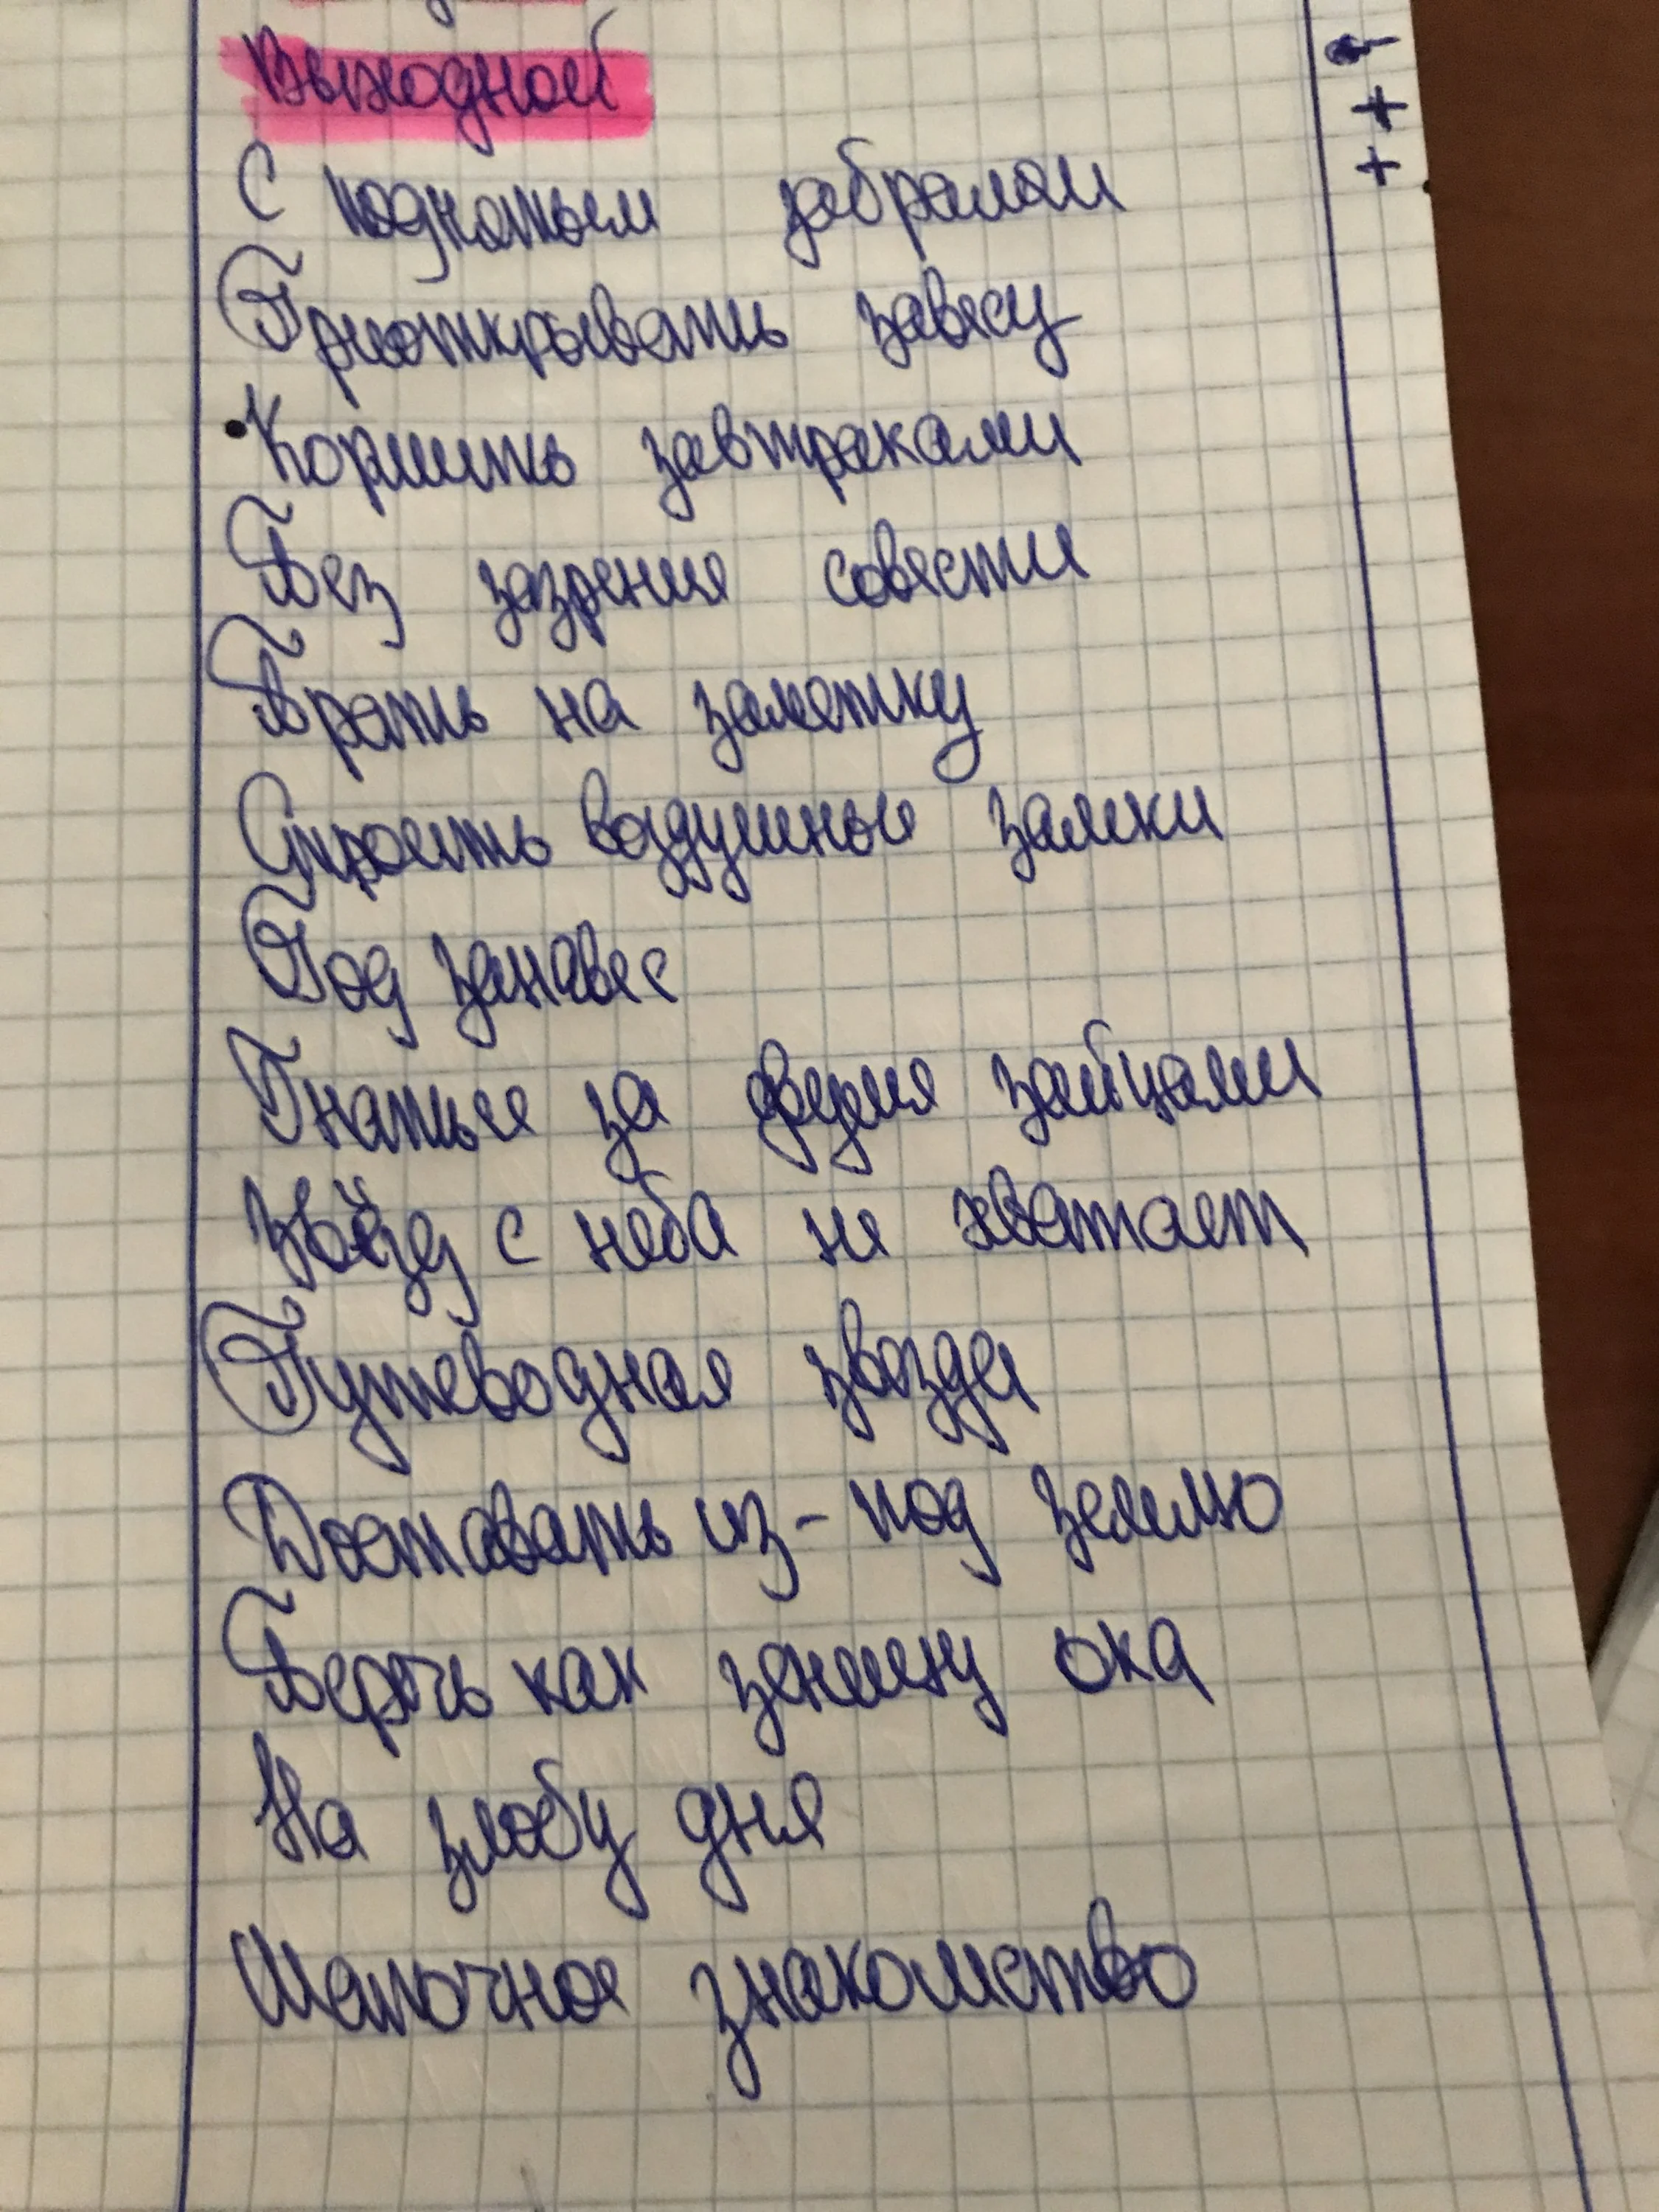 Выходной
С поднятым забралом
Приоткрывать завесу
Кормить завтраками
Без зазрения совести
Брать на заметку
Строить воздушные замки
Под занавес
Гнатьсе за двумя зайцами
Звёзд с неба не хватает
Путеводная звезда
Доставать из-под землю
Беречь как зеницу ока
На злобу дня
Шапочное знакомство